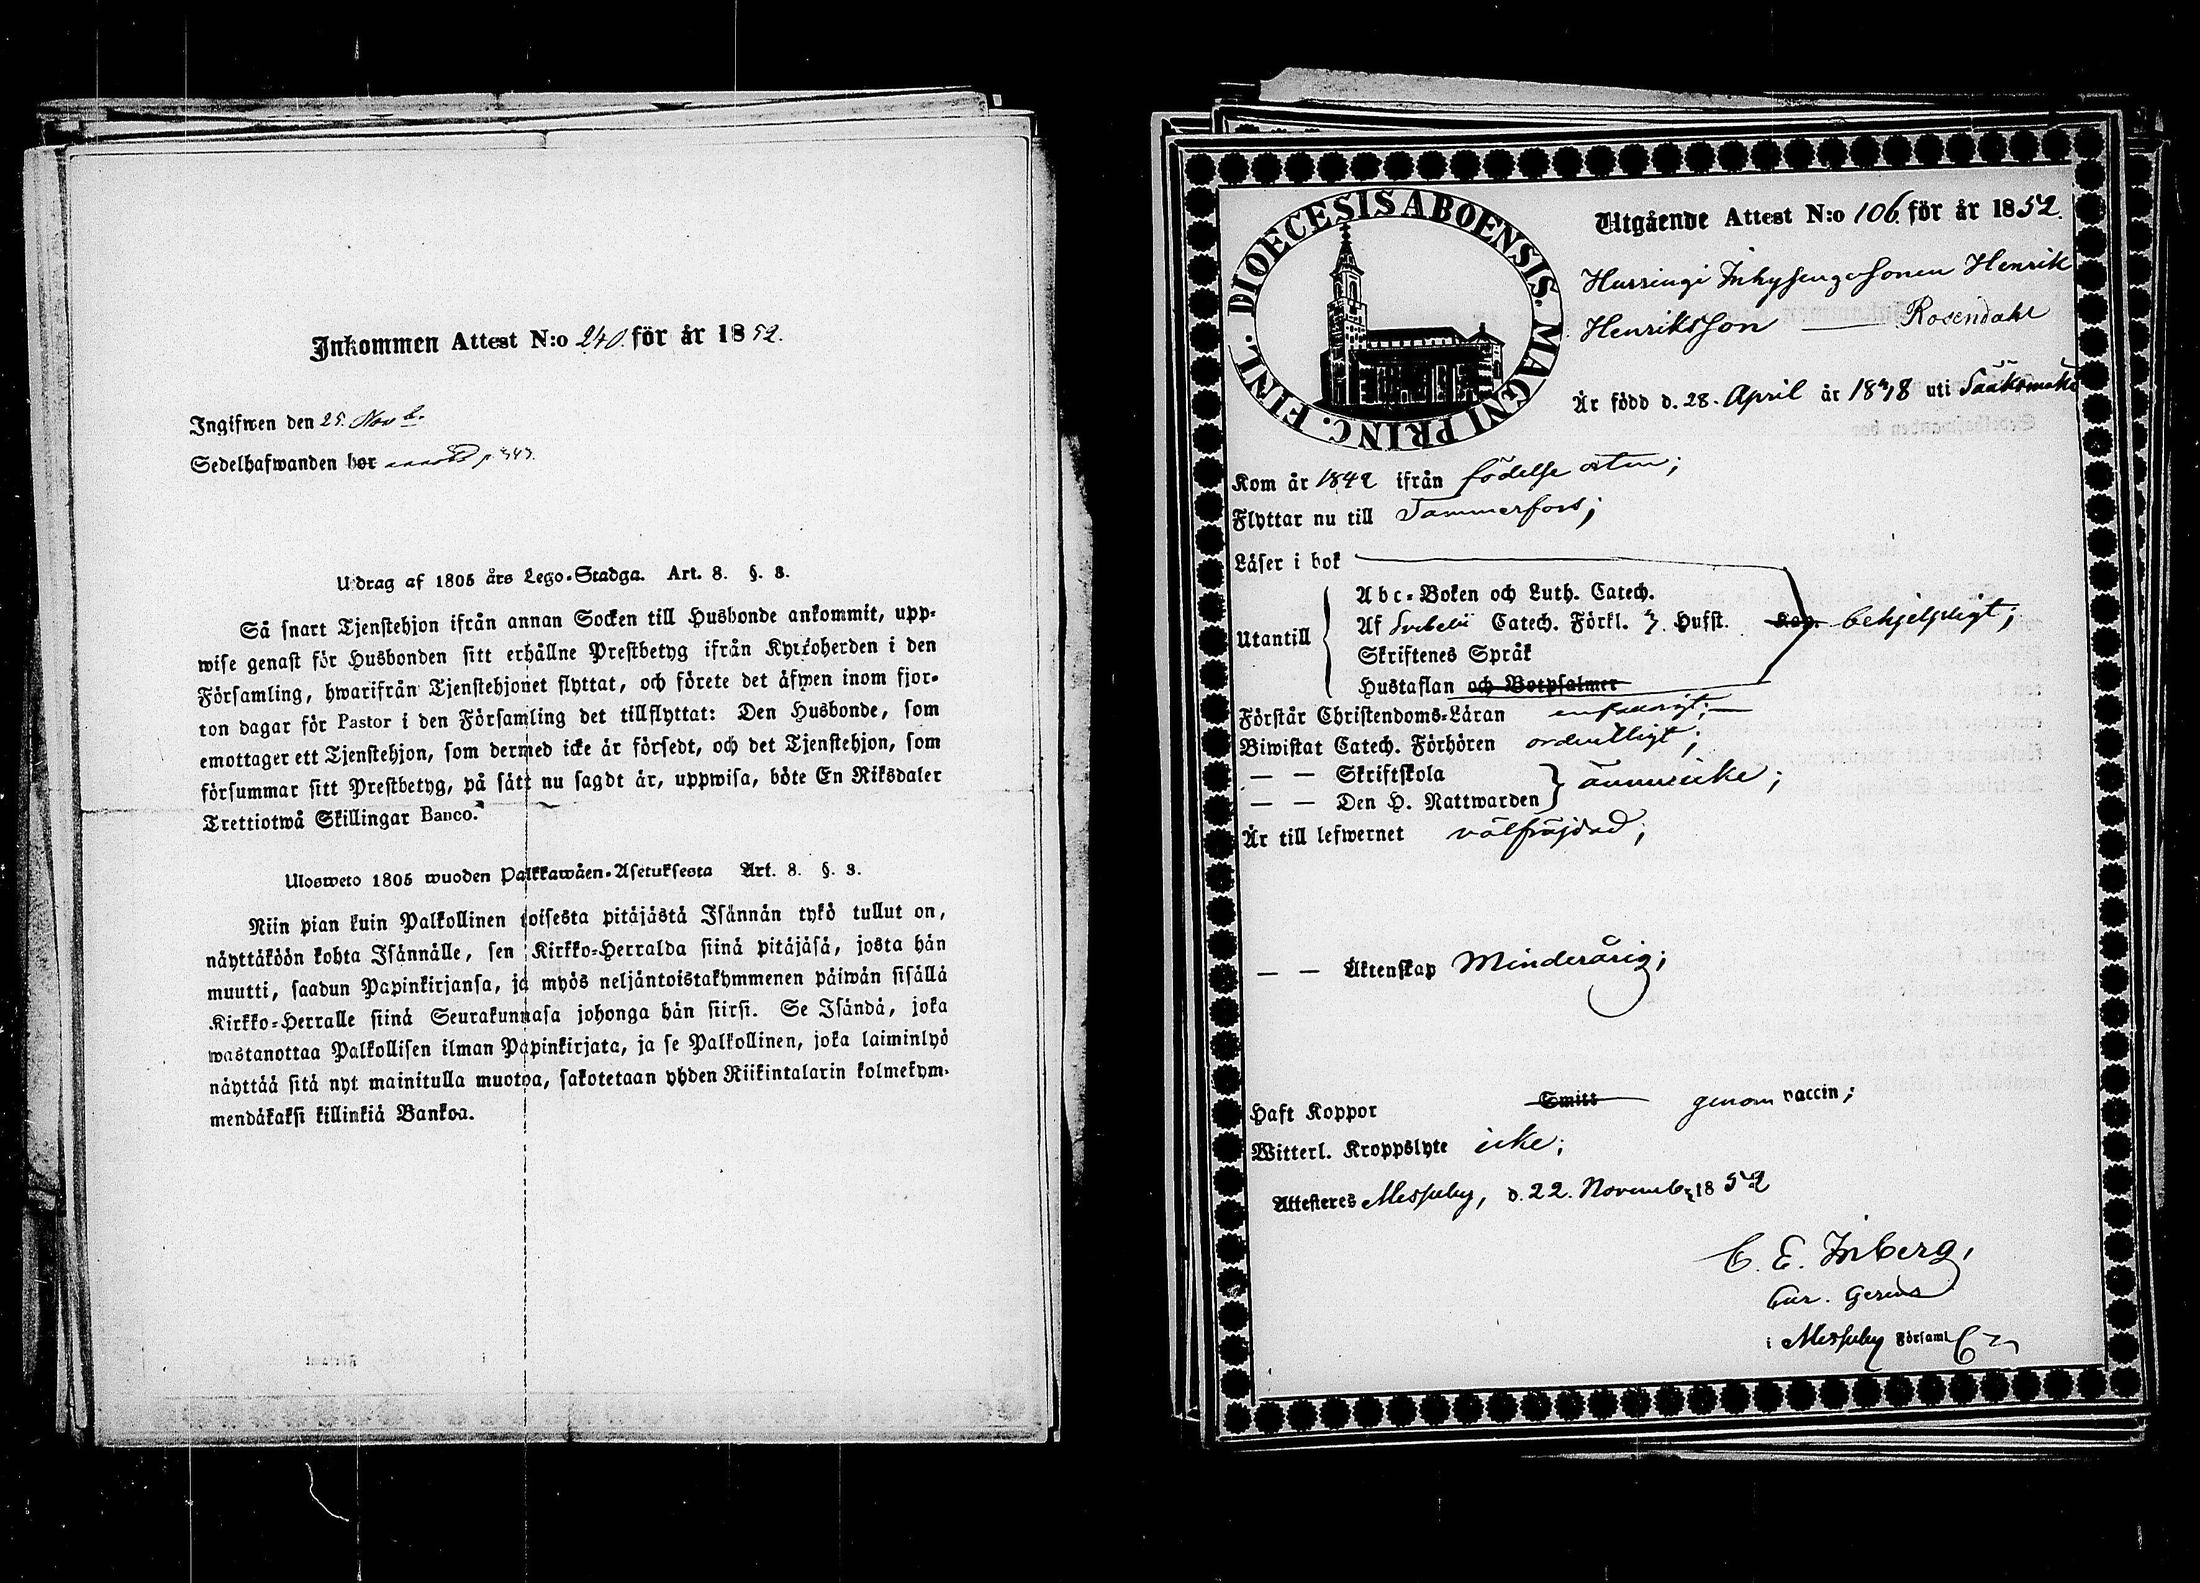 Inkommen Attest N:o 240. för år 1852.
Ingifwen den 25. Novb.
Sedelhafwanden bor p 343.
Utdrag af 1805 års Lego-Stadga. Art. 8. §. 3.
Så snart Tjenstehjon ifrån annan Socken till Husbonde ankommit, upp-
wise genast för Husbonden sitt erhållne Prestbetyg ifrån Kyrkoherden i den
Församling, hwarifrån Tjenstehjonet flyttat, och förete det äfwen inom fjor-
ton dagar för Pastor i den Församling det tillflyttat: Den Husbonde, som
emottager ett Tjenstehjon, som dermed icke är försedt, och det Tjenstehjon, som
försummar sitt Prestbetyg, på sätt nu sagdt är, uppwisa, böte En Riksdaler
Trettiotwå Skillingar Banco.
Ulosweto 1805 wuoden Palkkawäen-Asetuksesta Art. 8. §. 3.
Niin pian kuin Palkollinen toisesta pitäjästä Isännän tykö tullut on,
näyttäköön kohta Isännälle, sen Kirkko-Herralda siinä pitäjäsä, josta hän
muutti, saadun Papinkirjansa, ja myös neljäntoistakymmenen päiwän sisällä
Kirkko-Herralle siinä Seurakunnasa johonga hän siirsi. Se Isändä, joka
wastanottaa Palkollisen ilman Papinkirjata, ja se Palkollinen, joka laiminlyö
näyttää sitä nyt mainitulla muotoa, sakotetaan yhden Riikintalarin kolmekym-
mendäkaksi killinkiä Bankoa.
DIOECESIS ABOENSIS. MAGNI PRINC. FINL.
Utgående Attest N:o 106. för år 1852.
Hursingi Inhysingesonen Henrik
Henriksson — Rosendahl
Är född d. 28. April år 1838 uti Sääksmäki
Kom år 1842 ifrån födelse orten;
Flyttar nu till Tammerfors;
Läser i bok
Utantill
Abc-Boken och Luth. Catech.
Af Svebelii Catech. Förkl. 3 Hufst. behjelpligt;
Skriftenes Språk
Hustaflan och Botpsalmer
Förstår Christendoms-Läran enfaldigt;
Biwistat Catech. Förhören ordentligt;
— — Skriftskola
— — Den H. Nattwarden } ännu icke;
Är till lefwernet välfräjdad;
— — Äktenskap Minderårig;
Haft Koppor Smitt genom vaccin;
Witterl. Kroppslyte icke;
Attesteres Messuby, d. 22. Novemb. 1852
C. E. Inberg,
Cur. Gerens
i Messuby Församl